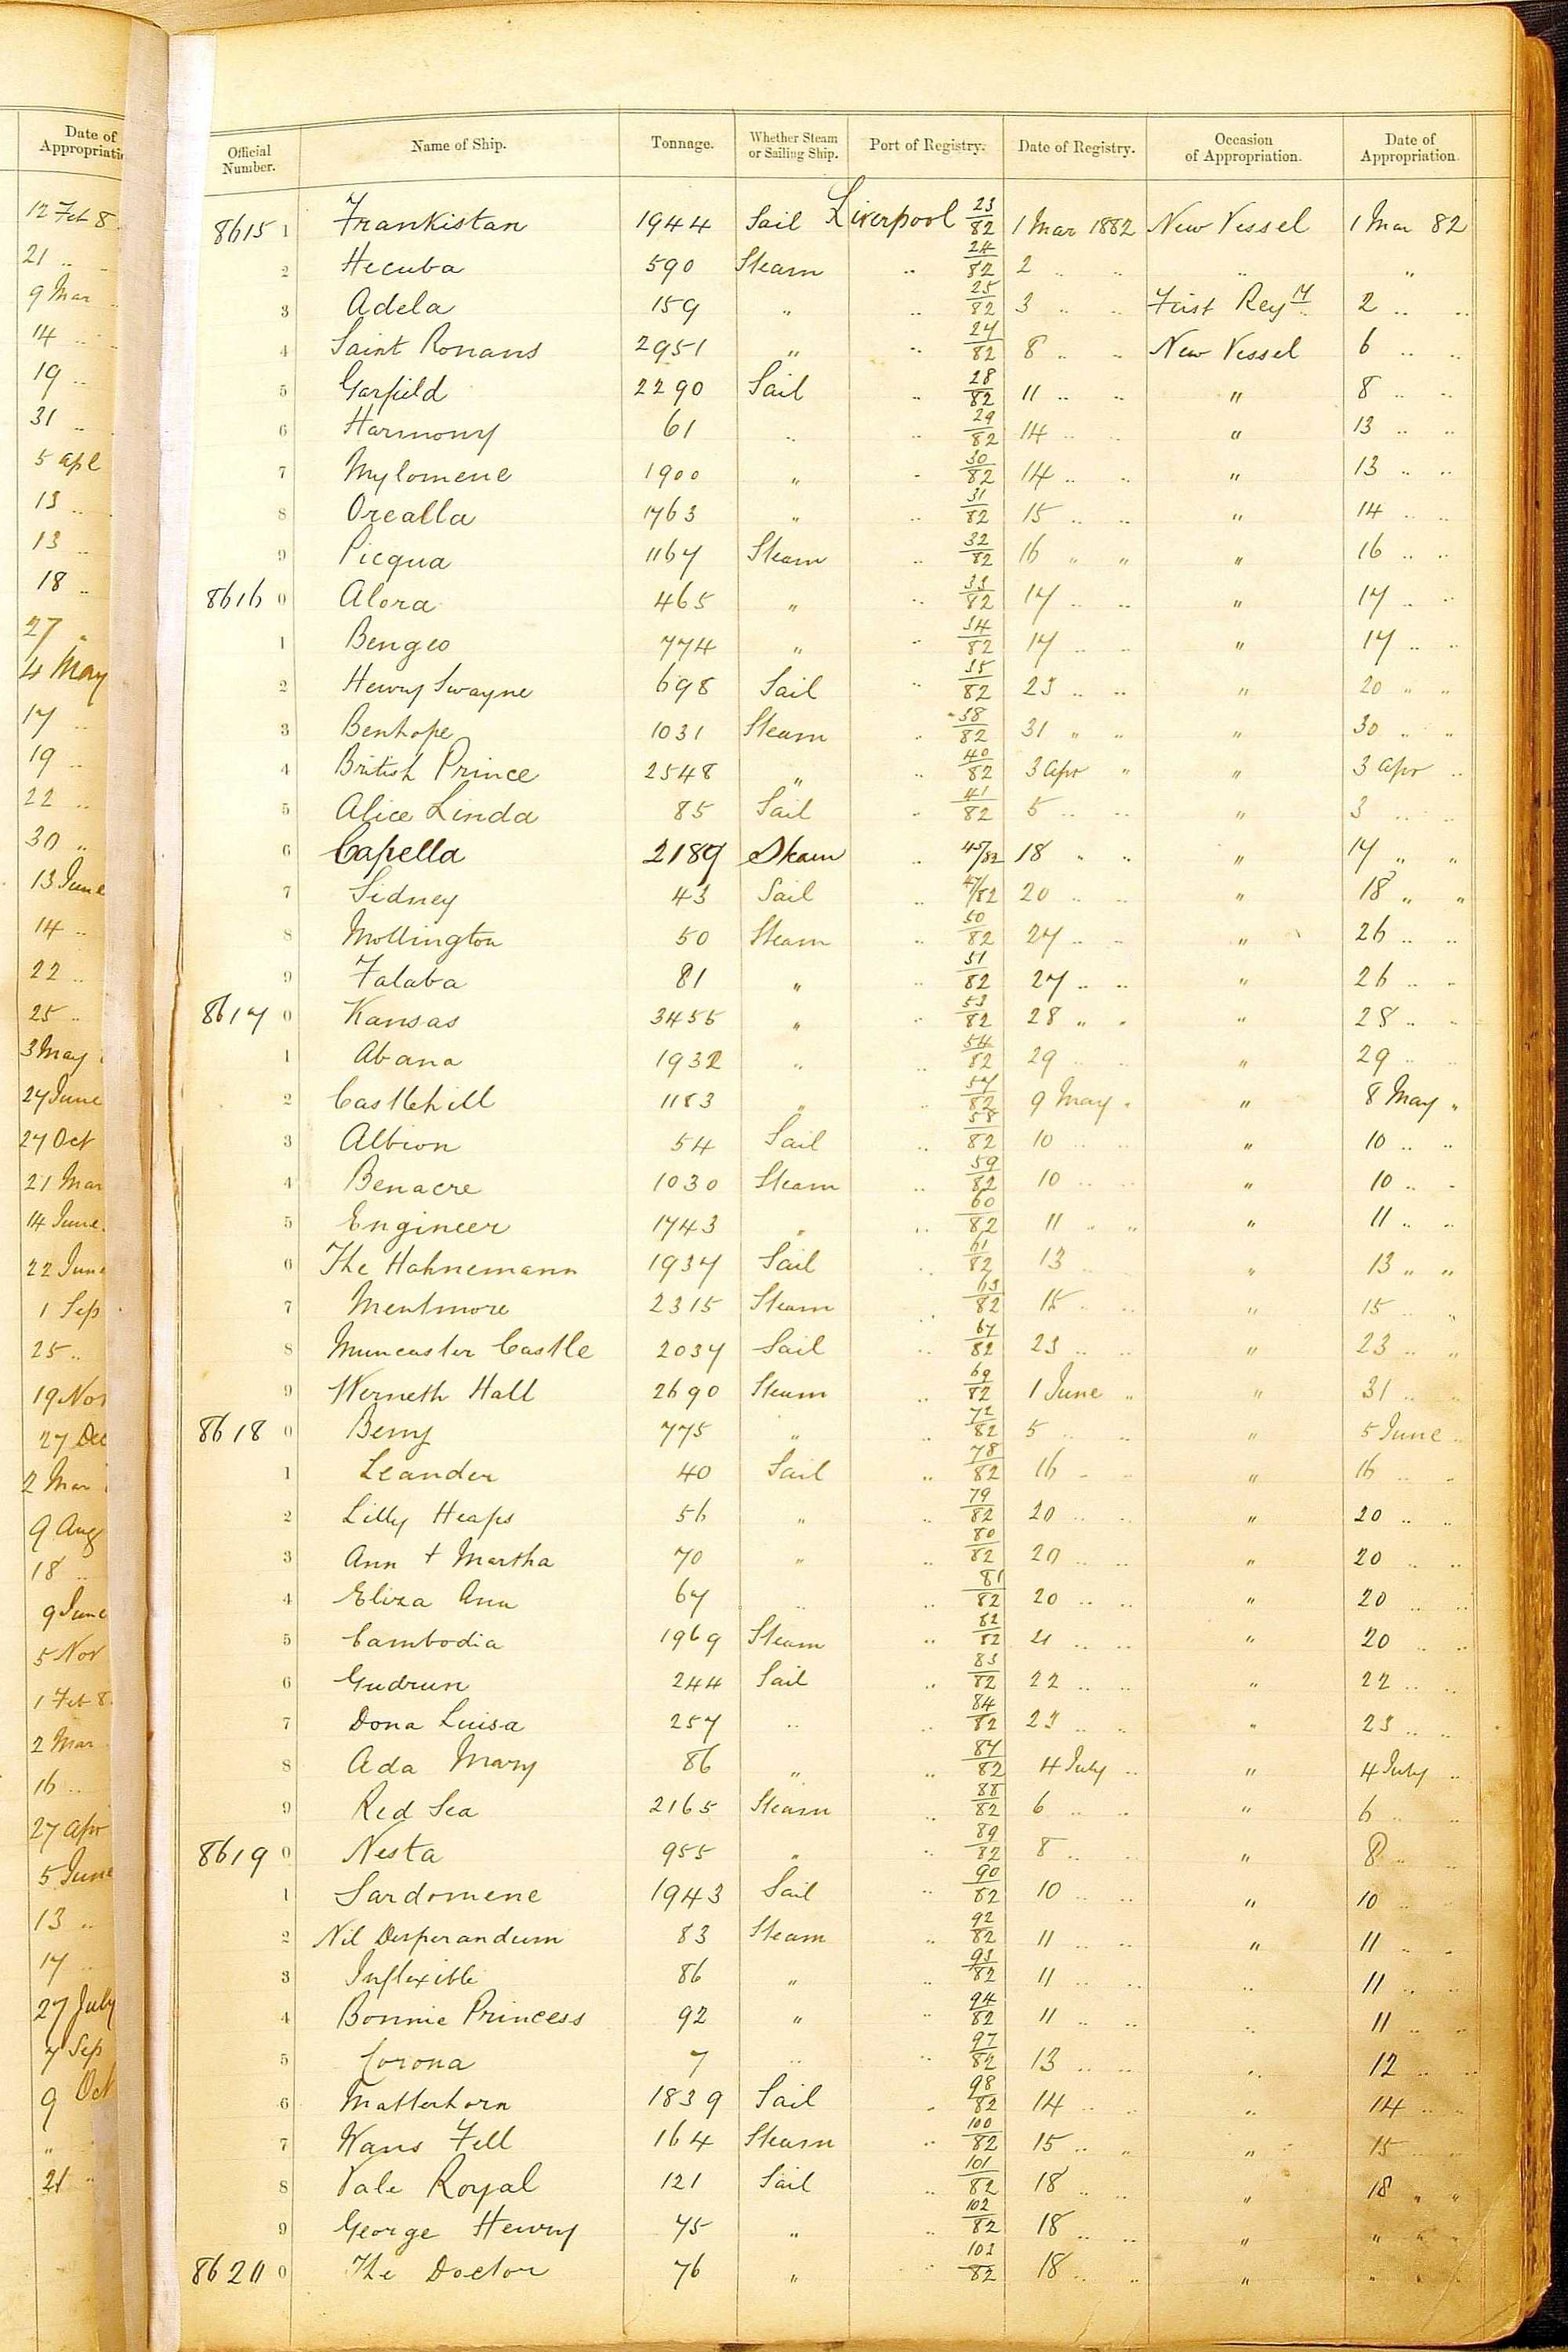 Date of
Appropriati
12 Feb 8
21 „
9 Mar „
14 „
19 „
31 „
5 Apl
13 „
13 „
18 „
27 „
4 May
17 „
19 „
22 „
30 „
13 June
14 „
22 „
25 „
3 May
27 June
27 Oct
21 Mar
14 June
22 June
1 Sep
25 „
19 Nov
27 Dec
2 Mar
9 Aug
18 „
9 June
5 Nov
1 Feb 8
2 Mar
16 „
27 Apr
5 June
13 „
17 „
27 July
7 Sep
9 Oct
„
21 „
Official Number. Name of Ship. Tonnage. Whether Steam or Sailing Ship. Port of Registry. Date of Registry. Occasion of Appropriation. Date of Appropriation.
8615 1 Frankistan 1944 Sail Liverpool 23/82 1 Mar 1882 New Vessel 1 Mar 82
2 Hecuba 590 Steam „ 24/82 2 „ „ „ „
3 Adela 159 „ „ 25/82 3 „ „ First Regy 2 „ „
4 Saint Ronans 2951 „ „ 27/82 8 „ „ New Vessel 6 „ „
5 Garfield 2290 Sail „ 28/82 11 „ „ „ 8 „ „
6 Harmony 61 „ „ 29/82 14 „ „ „ 13 „ „
7 Mylomene 1900 „ „ 30/82 14 „ „ „ 13 „ „
8 Orealla 1763 „ „ 31/82 15 „ „ „ 14 „ „
9 Picqua 1167 Steam „ 32/82 16 „ „ „ 16 „ „
8616 0 Alora 465 „ „ 33/82 17 „ „ „ 17 „ „
1 Bengeo 774 „ „ 34/82 17 „ „ „ 17 „ „
2 Henry Swayne 698 Sail „ 35/82 23 „ „ „ 20 „ „
3 Benhope 1031 Steam „ 38/82 31 „ „ „ 30 „ „
4 British Prince 2548 „ „ 40/82 3 Apr „ „ 3 Apr „
5 Alice Linda 85 Sail „ 41/82 5 „ „ „ 3 „ „
6 Capella 2189 Steam „ 45/82 18 „ „ „ 17 „ „
7 Sidney 43 Sail „ 47/82 20 „ „ „ 18 „ „
8 Mollington 50 Steam „ 50/82 27 „ „ „ 26 „ „
9 Falaba 81 „ „ 51/82 27 „ „ „ 26 „ „
8617 0 Kansas 3455 „ „ 53/82 28 „ „ „ 28 „ „
1 Abana 1932 „ „ 54/82 29 „ „ „ 29 „ „
2 Castlehill 1183 „ „ 57/82 9 May „ „ 8 May „
3 Albion 54 Sail „ 58/82 10 „ „ „ 10 „ „
4 Benacre 1030 Steam „ 59/82 10 „ „ „ 10 „ „
5 Engineer 1743 „ „ 60/82 11 „ „ „ 11 „ „
6 The Hahnemann 1937 Sail „ 61/82 13 „ „ „ 13 „ „
7 Mentmore 2315 Steam „ 63/82 15 „ „ „ 15 „ „
8 Muncaster Castle 2037 Sail „ 67/82 23 „ „ „ 23 „ „
9 Werneth Hall 2690 Steam „ 69/82 1 June „ „ 31 „ „
8618 0 Berry 775 „ „ 72/82 5 „ „ „ 5 June „
1 Leander 40 Sail „ 78/82 16 „ „ „ 16 „ „
2 Lilly Heaps 56 „ „ 79/82 20 „ „ „ 20 „ „
3 Ann + Martha 70 „ „ 80/82 20 „ „ „ 20 „ „
4 Eliza Ann 67 „ „ 81/82 20 „ „ „ 20 „ „
5 Cambodia 1969 Steam „ 82/82 21 „ „ „ 20 „ „
6 Gudrun 244 Sail „ 83/82 22 „ „ „ 22 „ „
7 Dona Luisa 257 „ „ 84/82 23 „ „ „ 23 „ „
8 Ada Mary 86 „ „ 87/82 4 July „ „ 4 July „
9 Red Sea 2165 Steam „ 88/82 6 „ „ „ 6 „ „
8619 0 Nesta 955 „ „ 89/82 8 „ „ „ 8 „ „
1 Sardomene 1943 Sail „ 90/82 10 „ „ „ 10 „ „
2 Nil Desperandum 83 Steam „ 92/82 11 „ „ „ 11 „ „
3 Inflexible 86 „ „ 93/82 11 „ „ „ 11 „ „
4 Bonnie Princess 92 „ „ 94/82 11 „ „ „ 11 „ „
5 Corona 7 „ „ 97/82 13 „ „ „ 12 „ „
6 Matterhorn 1839 Sail „ 98/82 14 „ „ „ 14 „ „
7 Wans Fell 164 Steam „ 100/82 15 „ „ „ 15 „ „
8 Vale Royal 121 Sail „ 101/82 18 „ „ „ 18 „ „
9 George Henry 75 „ „ 102/82 18 „ „ „ „ „ „
8620 0 The Doctor 76 „ „ 103/82 18 „ „ „ „ „ „